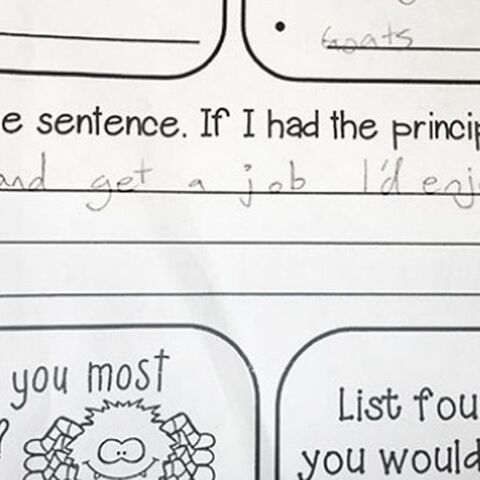 Goats
e sentence. If I had the princip
and get a job I'd enj
you most
List fou
you would